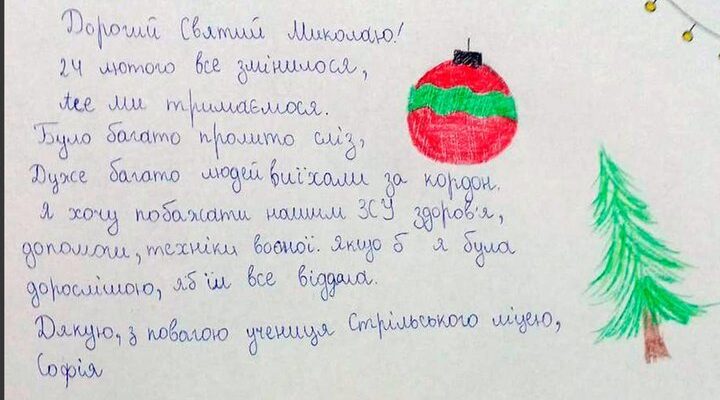 Дорогий Святий Миколаю!
24 лютого все змінилося,
але ми тримаємося.
Було багато пролито сліз,
Дуже багато людей виїхали за кордон.
Я хочу побажати нашим ЗСУ здоров'я,
допомоги, техніки воєної. Якщо б я була
дорослішою, я б їм все віддала.
Дякую, з повагою учениця Стрільського ліцею,
Софія